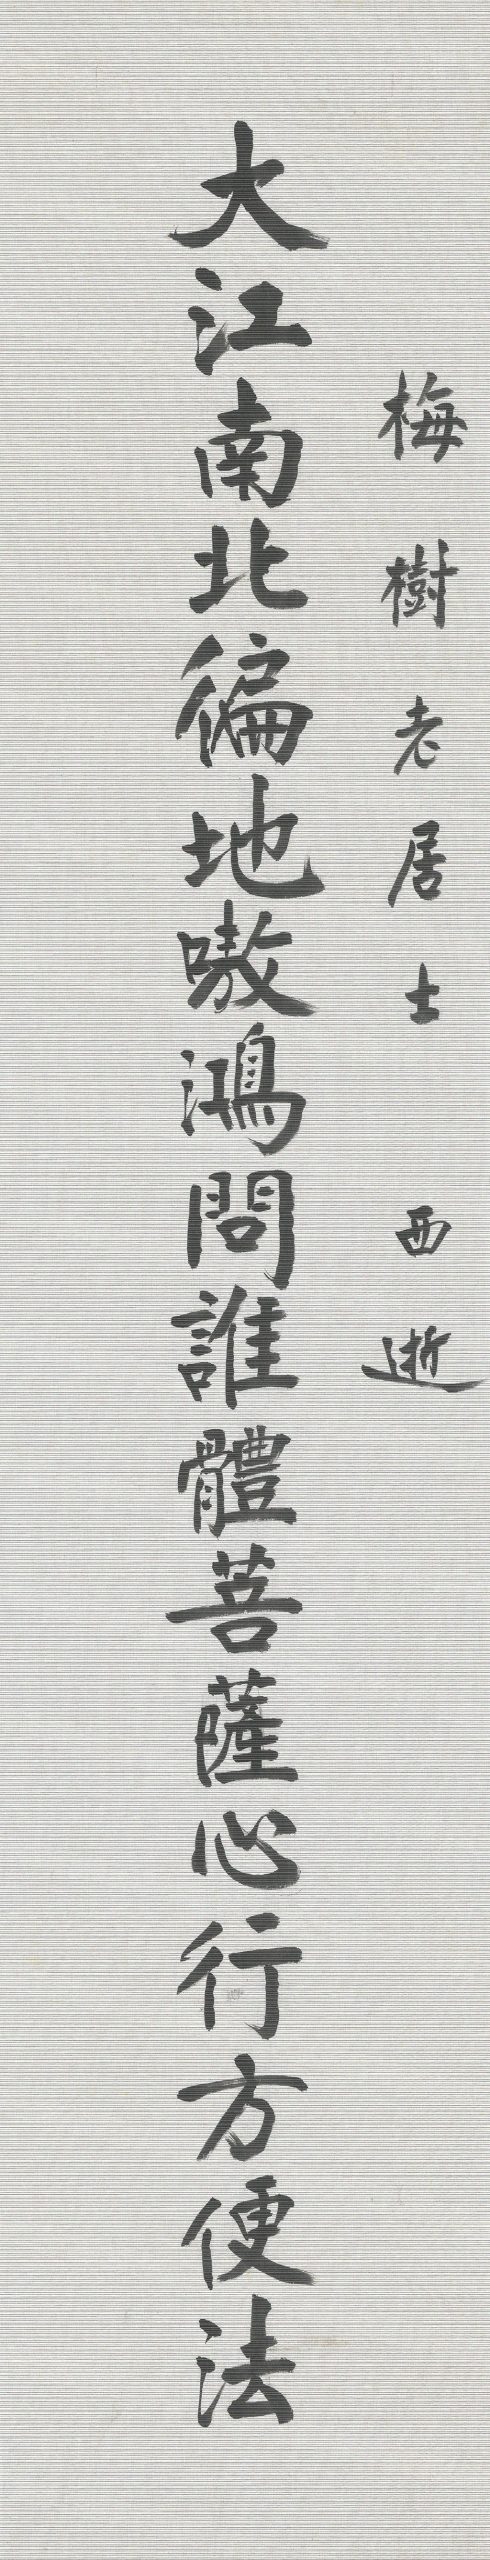 梅樹老居士 西逝
大江南北徧地嗷鴻問誰體菩薩心行方便法